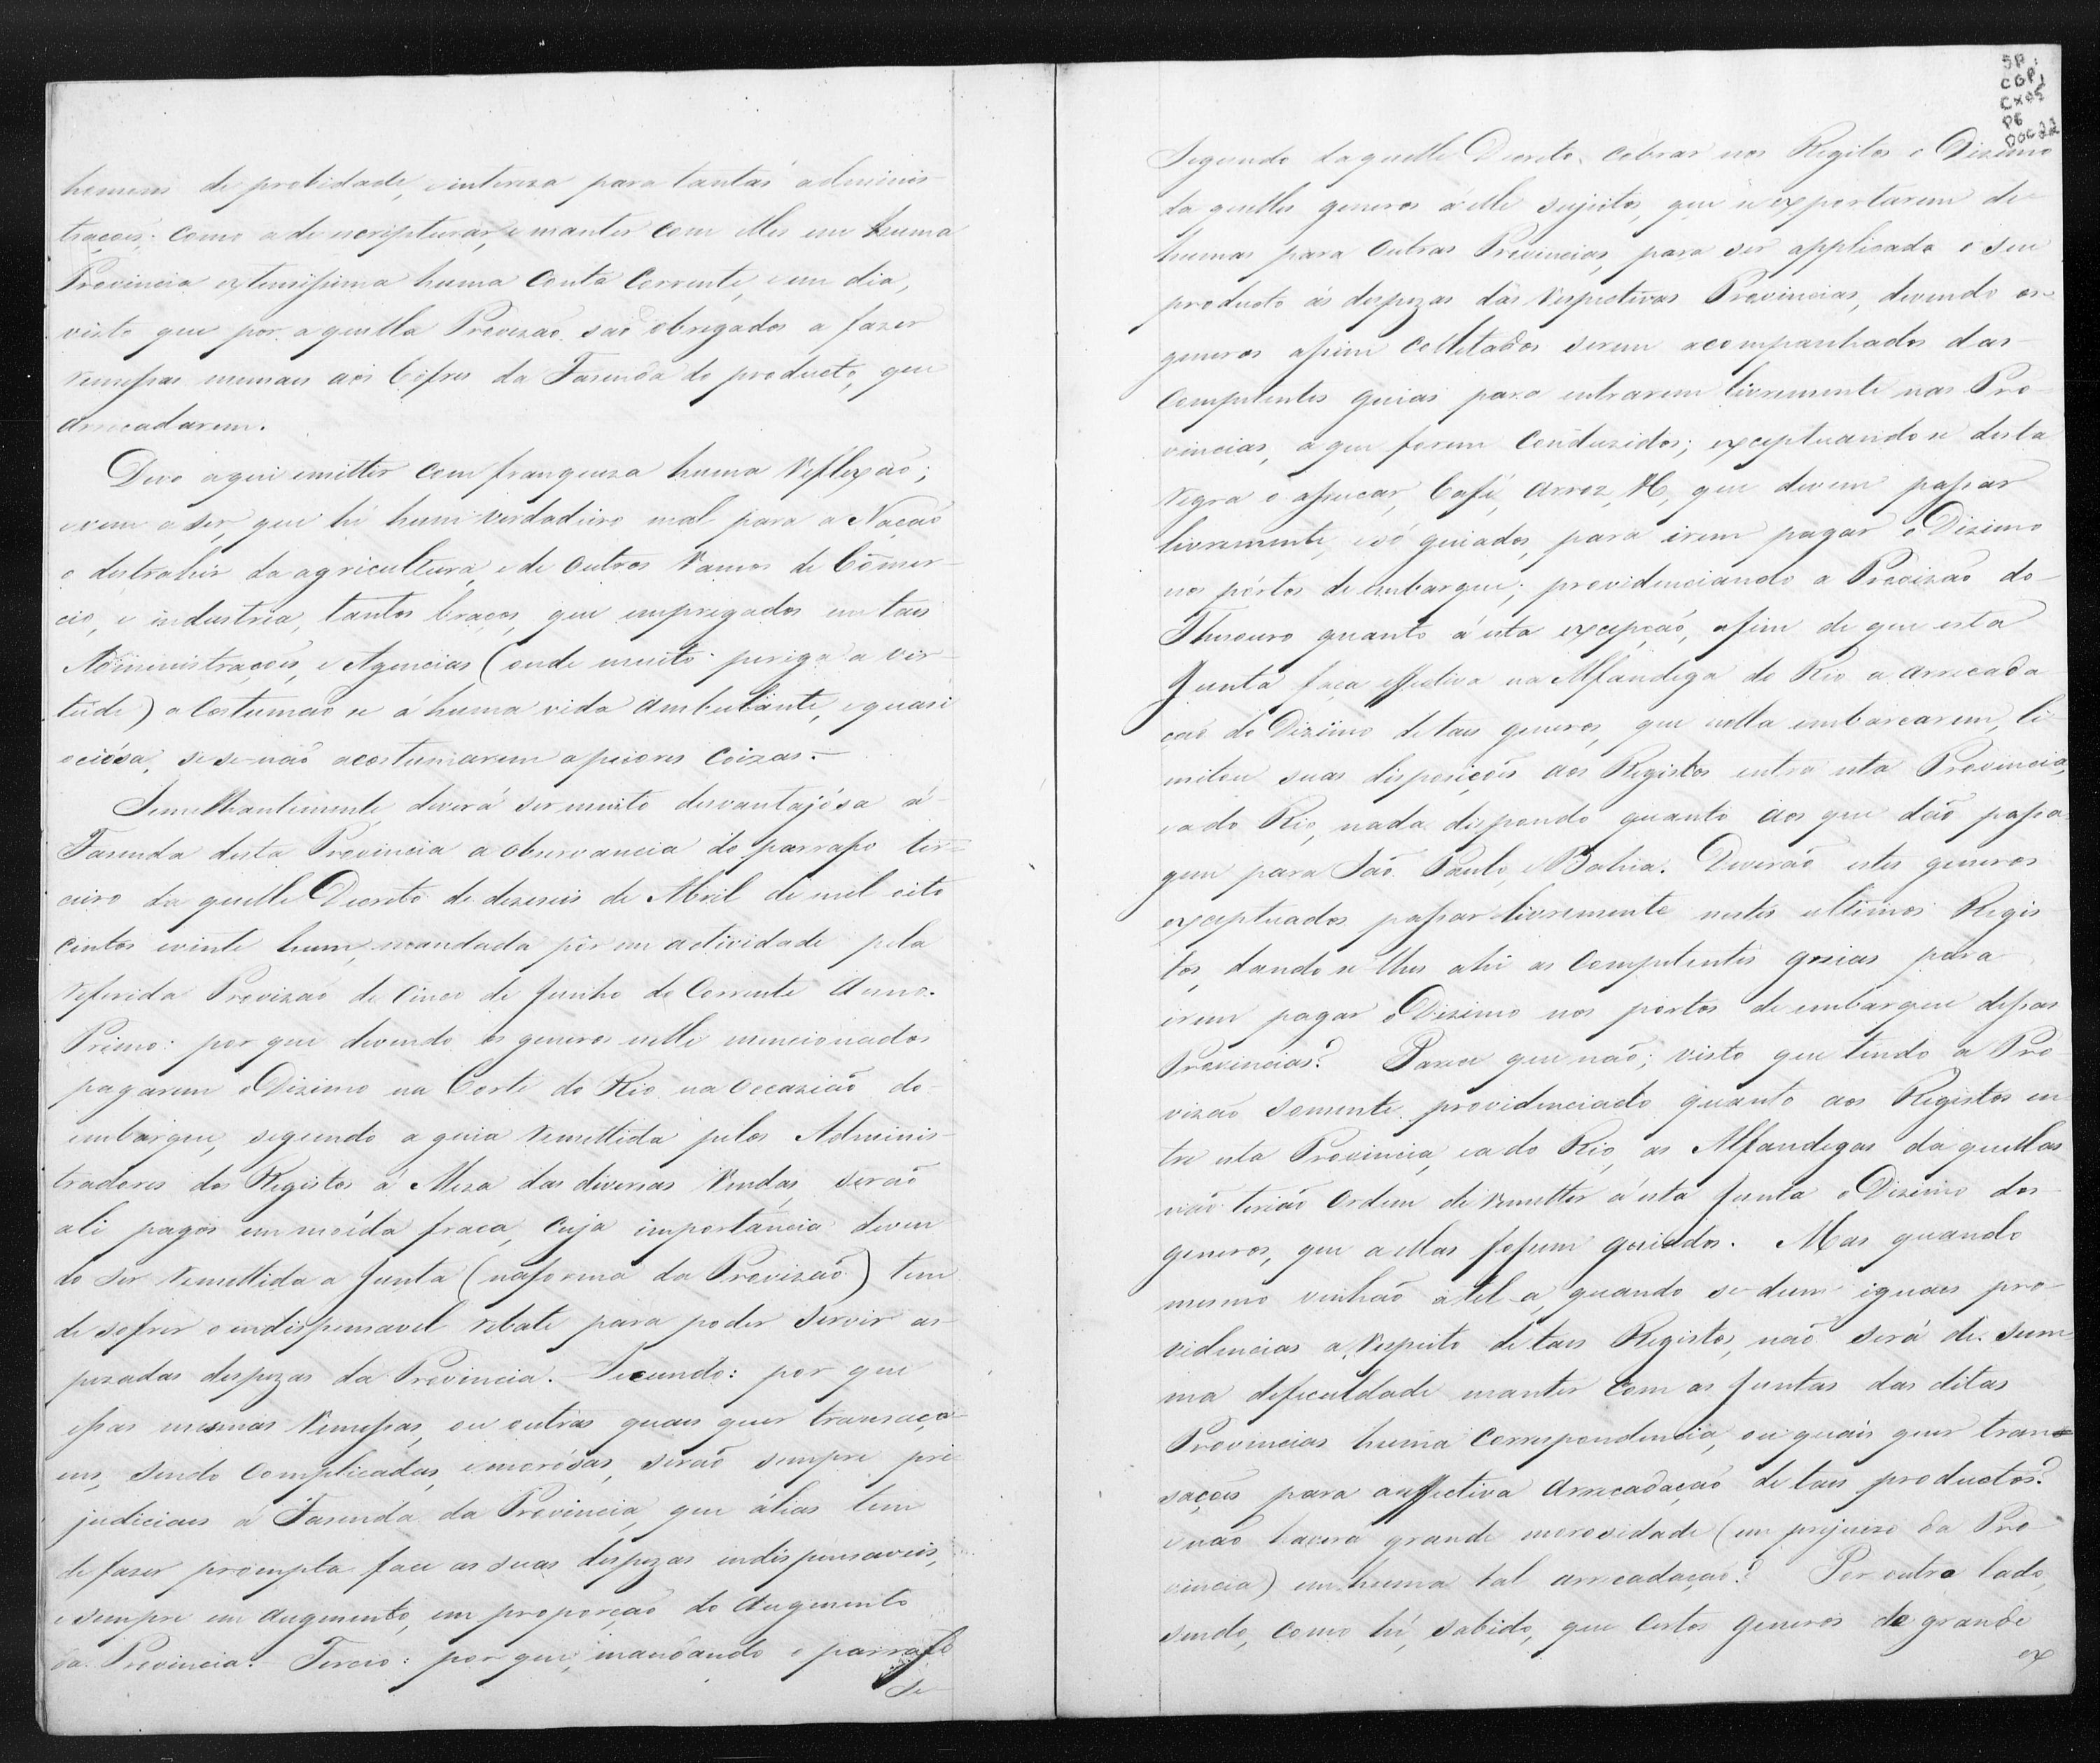 homens de probidade, e intereza para tantas adminis-
traçoes: como a de escripturar, e manter com elles em huma
Provincia extensissima huma Conta Corrente, e em dia,
visto que por aquella Provizaõ saõ obrigados a fazer
remessas mensaes aos Cofres da Fazenda do producto, que
arrecadarem.
Devo aqui emittir com franqueza huma reflexaõ;
e vem a ser, que hé hum verdadeiro mal para a Naçaõ
o destrahir da agricultura, e de outros ramos de Comer-
cio, e industria, tantos braços, que empregados em taes
Administraçoẽs, e Agencias (onde muito periga a vir-
tude) a Costumaõ se á huma vida ambulante, e quasi
ociósa, se se naõ acostumarem a peiores Coizas.-
Semelhantemente deverá ser muito desvantajósa á
Fazenda desta Provincia a observancia do parrafo ter-
ceiro da quelle Decreto de deseseis de Abril de mil oito
centos e vinte hum, mandada pôr em actividade pela
referida Provizaõ de Cinco de Junho do Corrente Anno.
Primo: por que devendo os generos nelle mencionados
pagarem o Dizimo na Corte do Rio na occaziaõ do
embarque, segundo a guia remettida pelos Adminis-
tradores dos Registos á Meza das diversas Rendas, seraõ
ali pagos em moéda fraca, Cuja importáncia deven
do ser remettida a Junta (na forma da Provizaõ) tem
de sofrer o indispensavel rebate para poder servir as
pezadas despezas da Provincia. - Secundo: por que
essas mesmas remessas, ou outras quaes quer transaço-
ens, sendo Complicadas, e morósas, seraõ sempre pre-
judiciaes á Fazenda da Provincia, que álias tem
de fazer prompta face as suas despezas indispensaveis,
e sempre em augmento, em proporçaõ do Augmento
da Provincia. Tercio: por que, mandando o parrafo
Se
SP.
CGP1
CX05
P6
DOC 22
Segundo daquelle Decreto cobrar nos Registos o Dizimo
da quelles generos á elle sujeitos, que se exportarem de
humas para outras Provincias, para ser applicado o seu
producto ás despezas das respectivas Provincias, devendo os
generos assim Colletados serem acompanhados das
Competentes guias para entrarem livremente nas Pro-
vincias, a que forem Conduzidos; exceptuando se desta
regra o assucar, Café, Arroz, &, que devem passar
livremente, e só guiados, para irem pagar o Dizimo
nos pórtos de embarque; providenciando a Provizaõ do
Thesouro quanto á esta excepçaõ, afim de que esta
Junta faça effectiva na Alfandega do Rio a arrecada
çaõ do Dizimo de taes generos, que nella embarcarem, li-
mitou suas disposiçoẽs aos Registos entre esta Provincia,
e a do Rio, nada dispondo quanto aos que daõ passa
gem para Saõ Paulo, e Bahia. Deveraõ estes generos
exceptuados passar livremente nestes ultimos Regis
tos, dando se lhes ahi as Competentes guias para
irem pagar o Dizimo nos portos de embarque dessas
Provincias? Parece que naõ; visto que tendo a Pro-
vizaõ somente providenciado quanto aos Registos en-
tre esta Provincia, e a do Rio, as Alfandegas daquellas
naõ teriaõ ordem de remetter á esta Junta o Dizimo dos
generos, que a ellas fossem guiados. Mas quando
mesmo venhaõ a tel-a, quando se dem iguaes pro-
videncias a respeito de taes Registos, naõ será de sum
ma deficuldade manter com as Juntas das ditas
Provincias huma Correspondencia, ou quaes quer tran-
saçoẽs para a effectiva Arrecadaçaõ de taes productos?
e naõ haverá grande morosidade (em prejuizo da Pro-
vincia) em huma tal arrecadaçaõ? Por outro lado,
sendo, como hé, sabido, que Certos generos de grande
ex